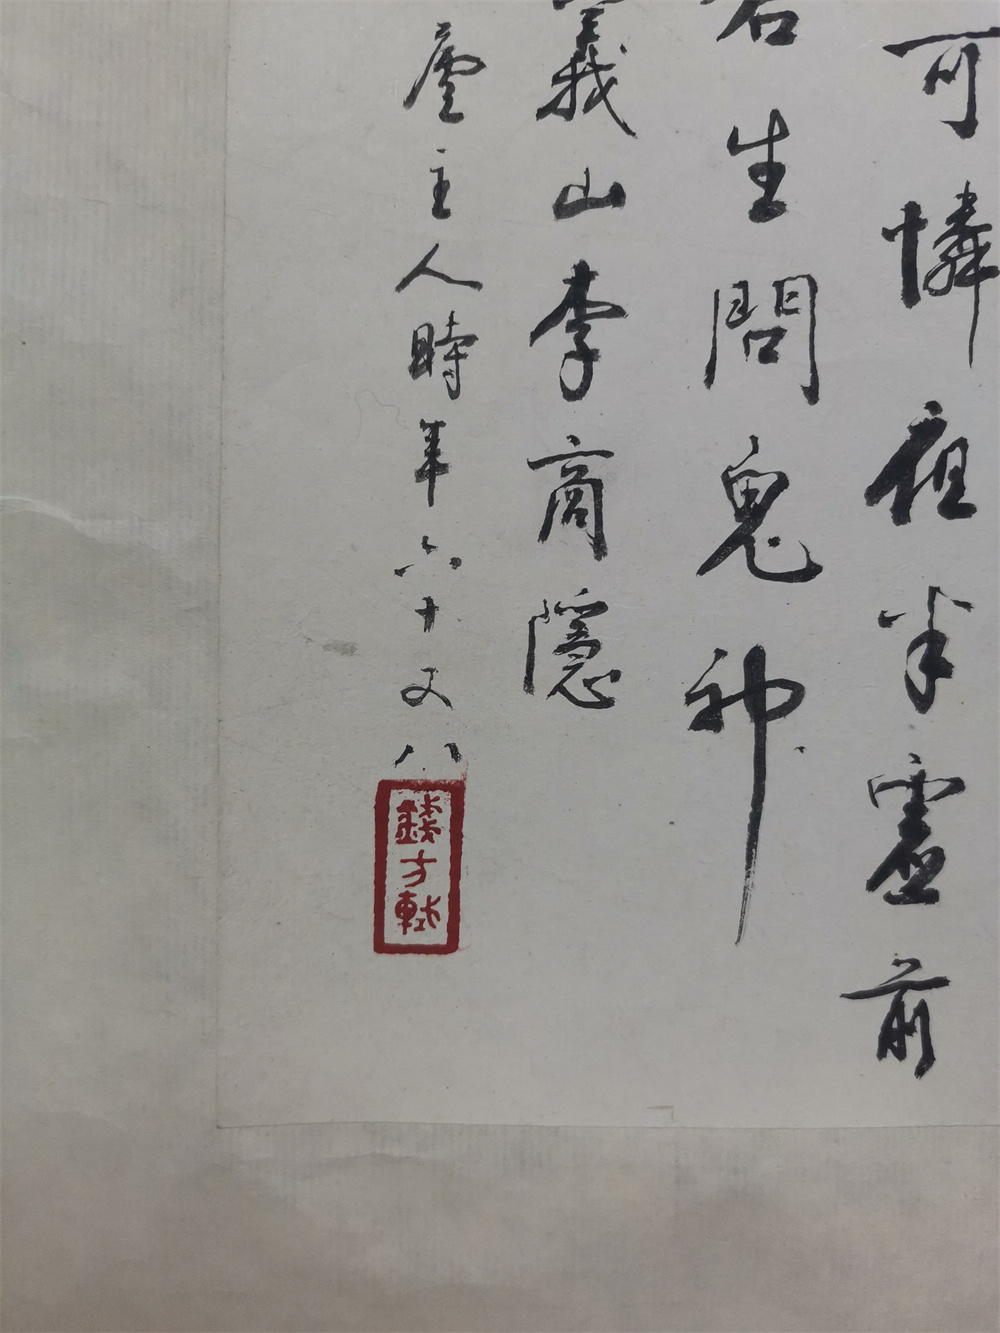 可憐夜半虛前
蒼生問鬼神
義山李商隱
廬主人時年六十又八
錢方軾